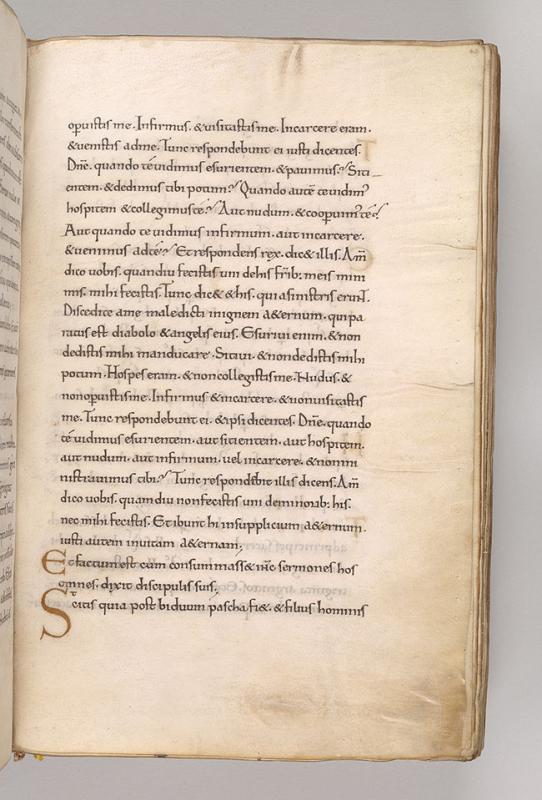 opuistis me. Infirmus. & uisitastis me. In carcere eram.
& uenistis ad me. Tunc respondebunt ei iusti dicentes.
Dne. quando te uidimus esurientem. & pauimus? Siti
entem. & dedimus tibi potum? Quando aute te uidim
hospitem & collegimus te? Aut nudum. & cooperuim te?
Aut quando te uidimus infirmum. aut in carcere.
& uenimus ad te? Et respondens rex. dic& illis. Am
dico uobis. quandiu fecistis uni de his frib; meis mini
mis. mihi fecistis. Tunc dic& & his. qui a sinistris erunt.
Discedite a me maledicti in ignem a&ernum. qui pa
ratus est diabolo & angelis eius. Esuriui enim. & non
dedistis mihi manducare. Sitiui. & non dedistis mihi
potum. Hospes eram. & non collegistis me. Nudus. &
non opuistis me. Infirmus & in carcere. & non uisitastis
me. Tunc respondebunt ei. & ipsi dicentes. Dne. quando
te uidimus esurientem. aut sitientem. aut hospitem.
aut nudum. aut infirmum. uel in carcere. & non mi
nistrauimus tibi? Tunc respondebit illis dicens. Am
dico uobis. quamdiu non fecistis uni de minorib; his.
nec mihi fecistis. Et ibunt hi in supplicium a&ernum.
iusti autem in uitam a&ernam;
Et factum est cum consummass& ihc sermones hos
omnes. dixit discipulis suis;
Scitis quia post biduum pascha fi&. & filius hominis